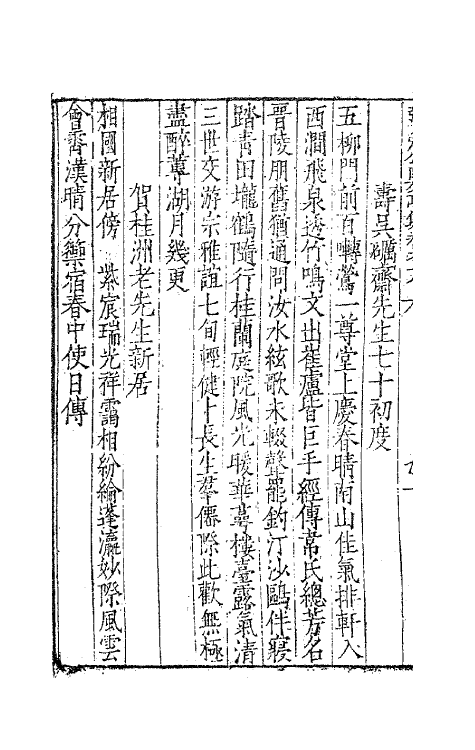 壽吳礪齋先生七十初度
五柳門前百囀鶯一尊堂上慶春晴南山佳氣排軒入
西澗飛泉透竹鳴文出崔盧皆巨手經傳韋氏總芳名
晉陵朋舊猶通問汝水絃歌未輟聲罷釣汀沙鷗伴寢
踏青田壠鶴隨行桂蘭庭院風光暖華萼樓臺露氣清
三世交游宗雅誼七旬輕健卜長生羣僊際此歡無極
盡醉蓴湖月幾更
賀桂洲老先生新居
相國新居傍紫宸瑞光祥靄相紛綸蓬瀛妙際風雲
會霄漢晴分藥宿春中使日傳